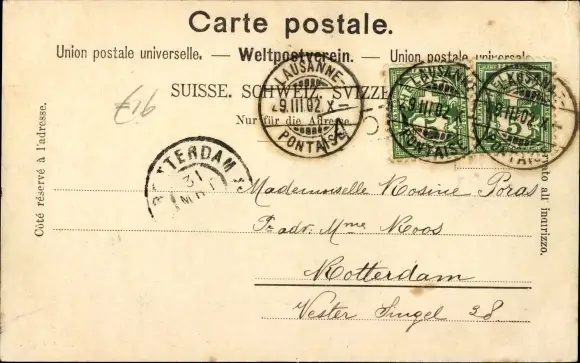 Carte postale.
Union postale universelle. — Weltpostverein. — Union postale universale
SUISSE. SCHWEIZ. SVIZZE
Nur für die Adresse
Côté réservé à l'adresse.
all' indirizzo.
£16
LAUSANNE-
29.III.02 X-
PONTAISE
LAUSANNE-
9.III.02
PONTAISE
LAUSANNE-
9.III.02
PONTAISE
5
5
ROTTERDAM
Mademoiselle Rosine Poras
Pr adr. Mme Roos
Rotterdam
Vester Singel 38.